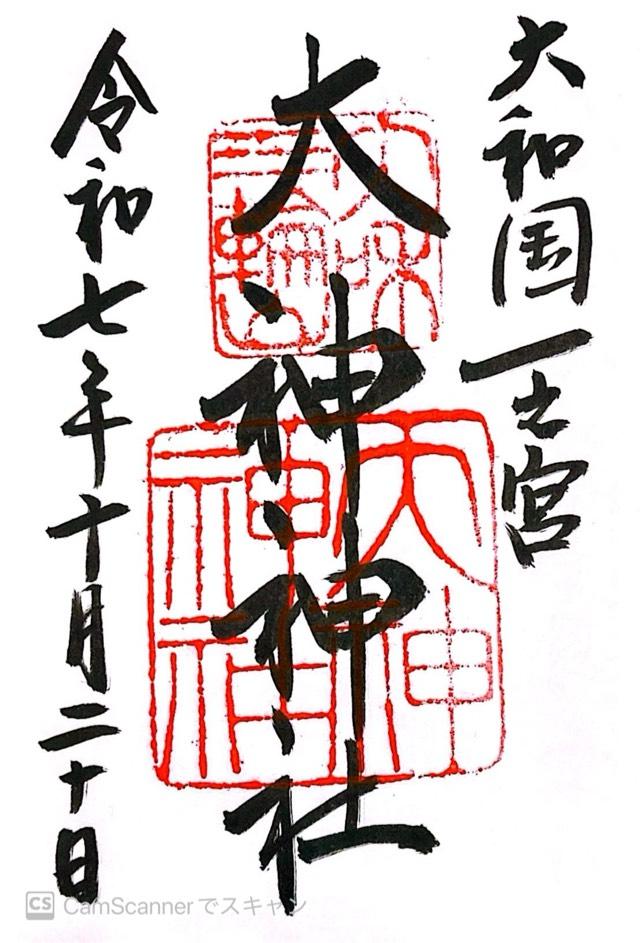 大和国一之宮
大神神社
令和七年十月二十日
大和
三輪山
大神
神社
CS CamScannerでスキャン